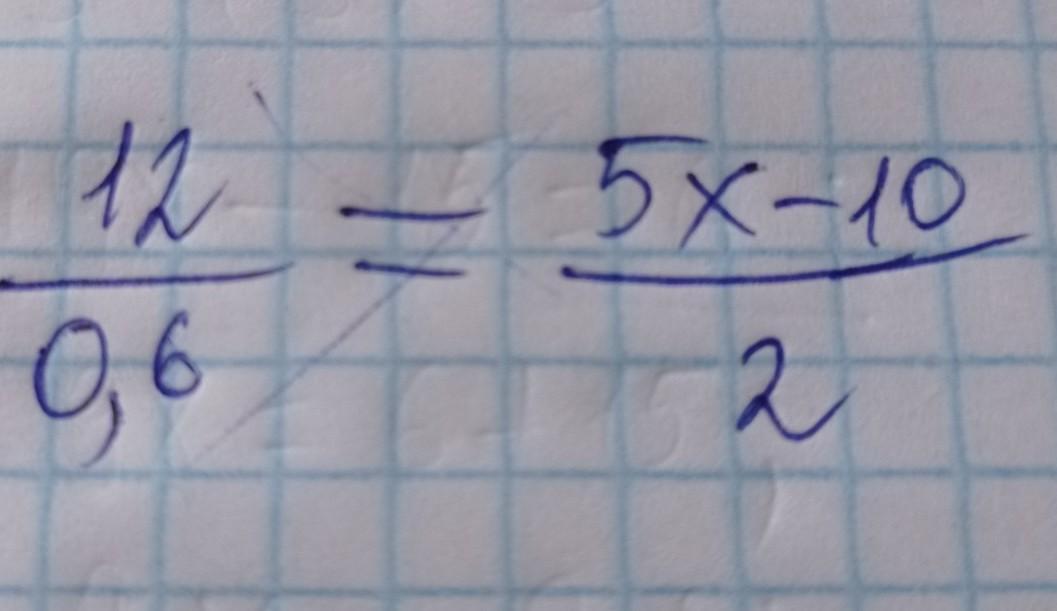 12/0,6 = (5x-10)/2